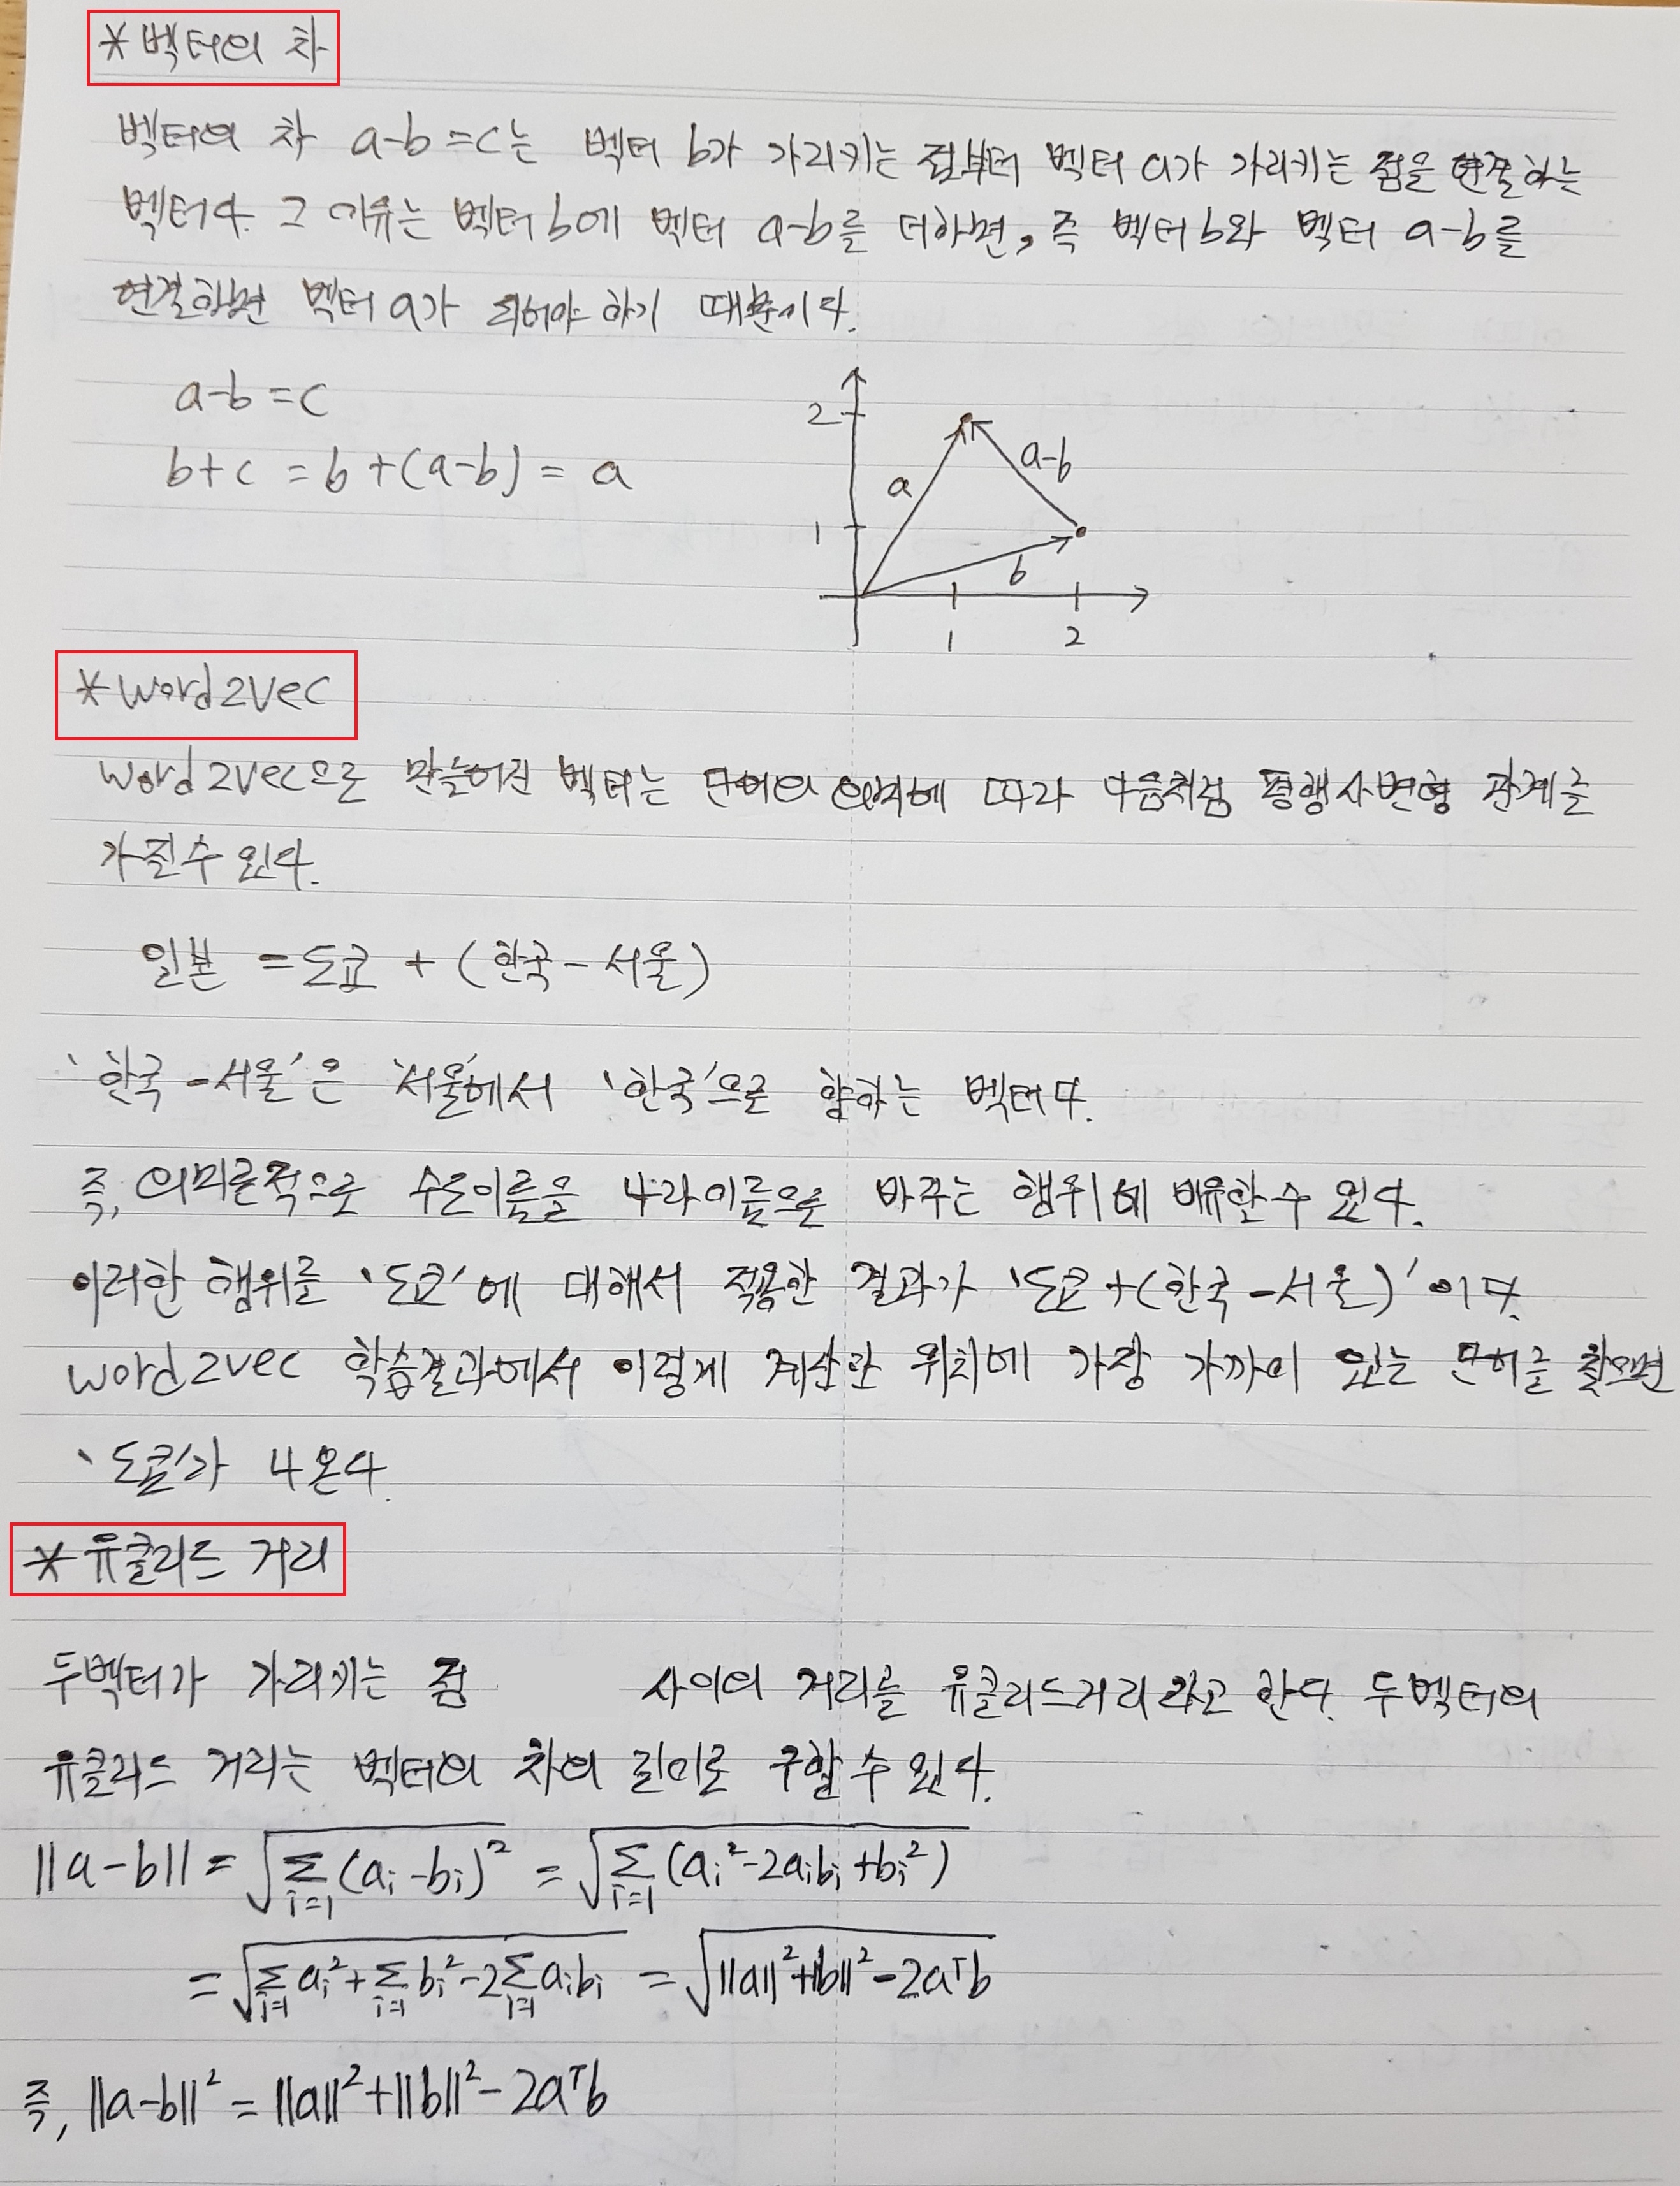 *벡터의 차
벡터의 차 a-b=c는 벡터 b가 가리키는 점부터 벡터 a가 가리키는 점을 연결하는
벡터다. 그 이유는 벡터 b에 벡터 a-b를 더하면, 즉 벡터 b와 벡터 a-b를
연결하면 벡터 a가 되어야 하기 때문이다.
a-b=c
b+c = b+(a-b) = a
2
a
a-b
1
b
1 2
*word2vec
word2vec으로 만들어진 벡터는 단어의 의미에 따라 다음처럼 평행사변형 관계를
가질수 있다.
일본 = 도쿄 + (한국-서울)
'한국-서울'은 '서울'에서 '한국'으로 향하는 벡터다.
즉, 의미론적으로 수도이름을 나라이름으로 바꾸는 행위에 비유할 수 있다.
이러한 행위를 '도쿄'에 대해서 적용한 결과가 '도쿄+(한국-서울)'이다.
word2vec 학습결과에서 이렇게 계산한 위치에 가장 가까이 있는 단어를 찾으면
'도쿄'가 나온다.
*유클리드 거리
두벡터가 가리키는 점 사이의 거리를 유클리드거리라고 한다. 두벡터의
유클리드 거리는 벡터의 차의 길이로 구할 수 있다.
||a-b|| = √(Σ_{i=1}(aᵢ-bᵢ)²) = √(Σ_{i=1}(aᵢ²-2aᵢbᵢ+bᵢ²))
= √(Σ_{i=1}aᵢ²+Σ_{i=1}bᵢ²-2Σ_{i=1}aᵢbᵢ) = √(||a||²+||b||²-2aᵀb)
즉, ||a-b||² = ||a||²+||b||²-2aᵀb